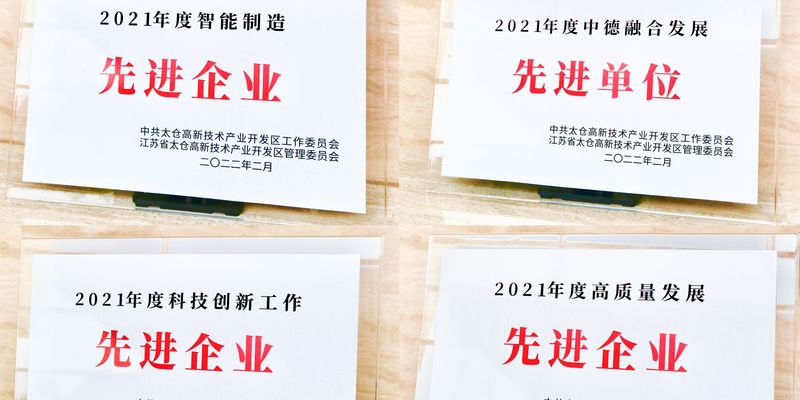 2021年度智能制造
先进企业
中共太仓高新技术产业开发区工作委员会
江苏省太仓高新技术产业开发区管理委员会
二〇二二年二月
2021年度中德融合发展
先进单位
中共太仓高新技术产业开发区工作委员会
江苏省太仓高新技术产业开发区管理委员会
二〇二二年二月
2021年度科技创新工作
先进企业
2021年度高质量发展
先进企业